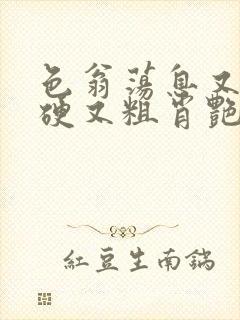 色翁荡息又
硬又粗肖艷
紅豆生南鍴